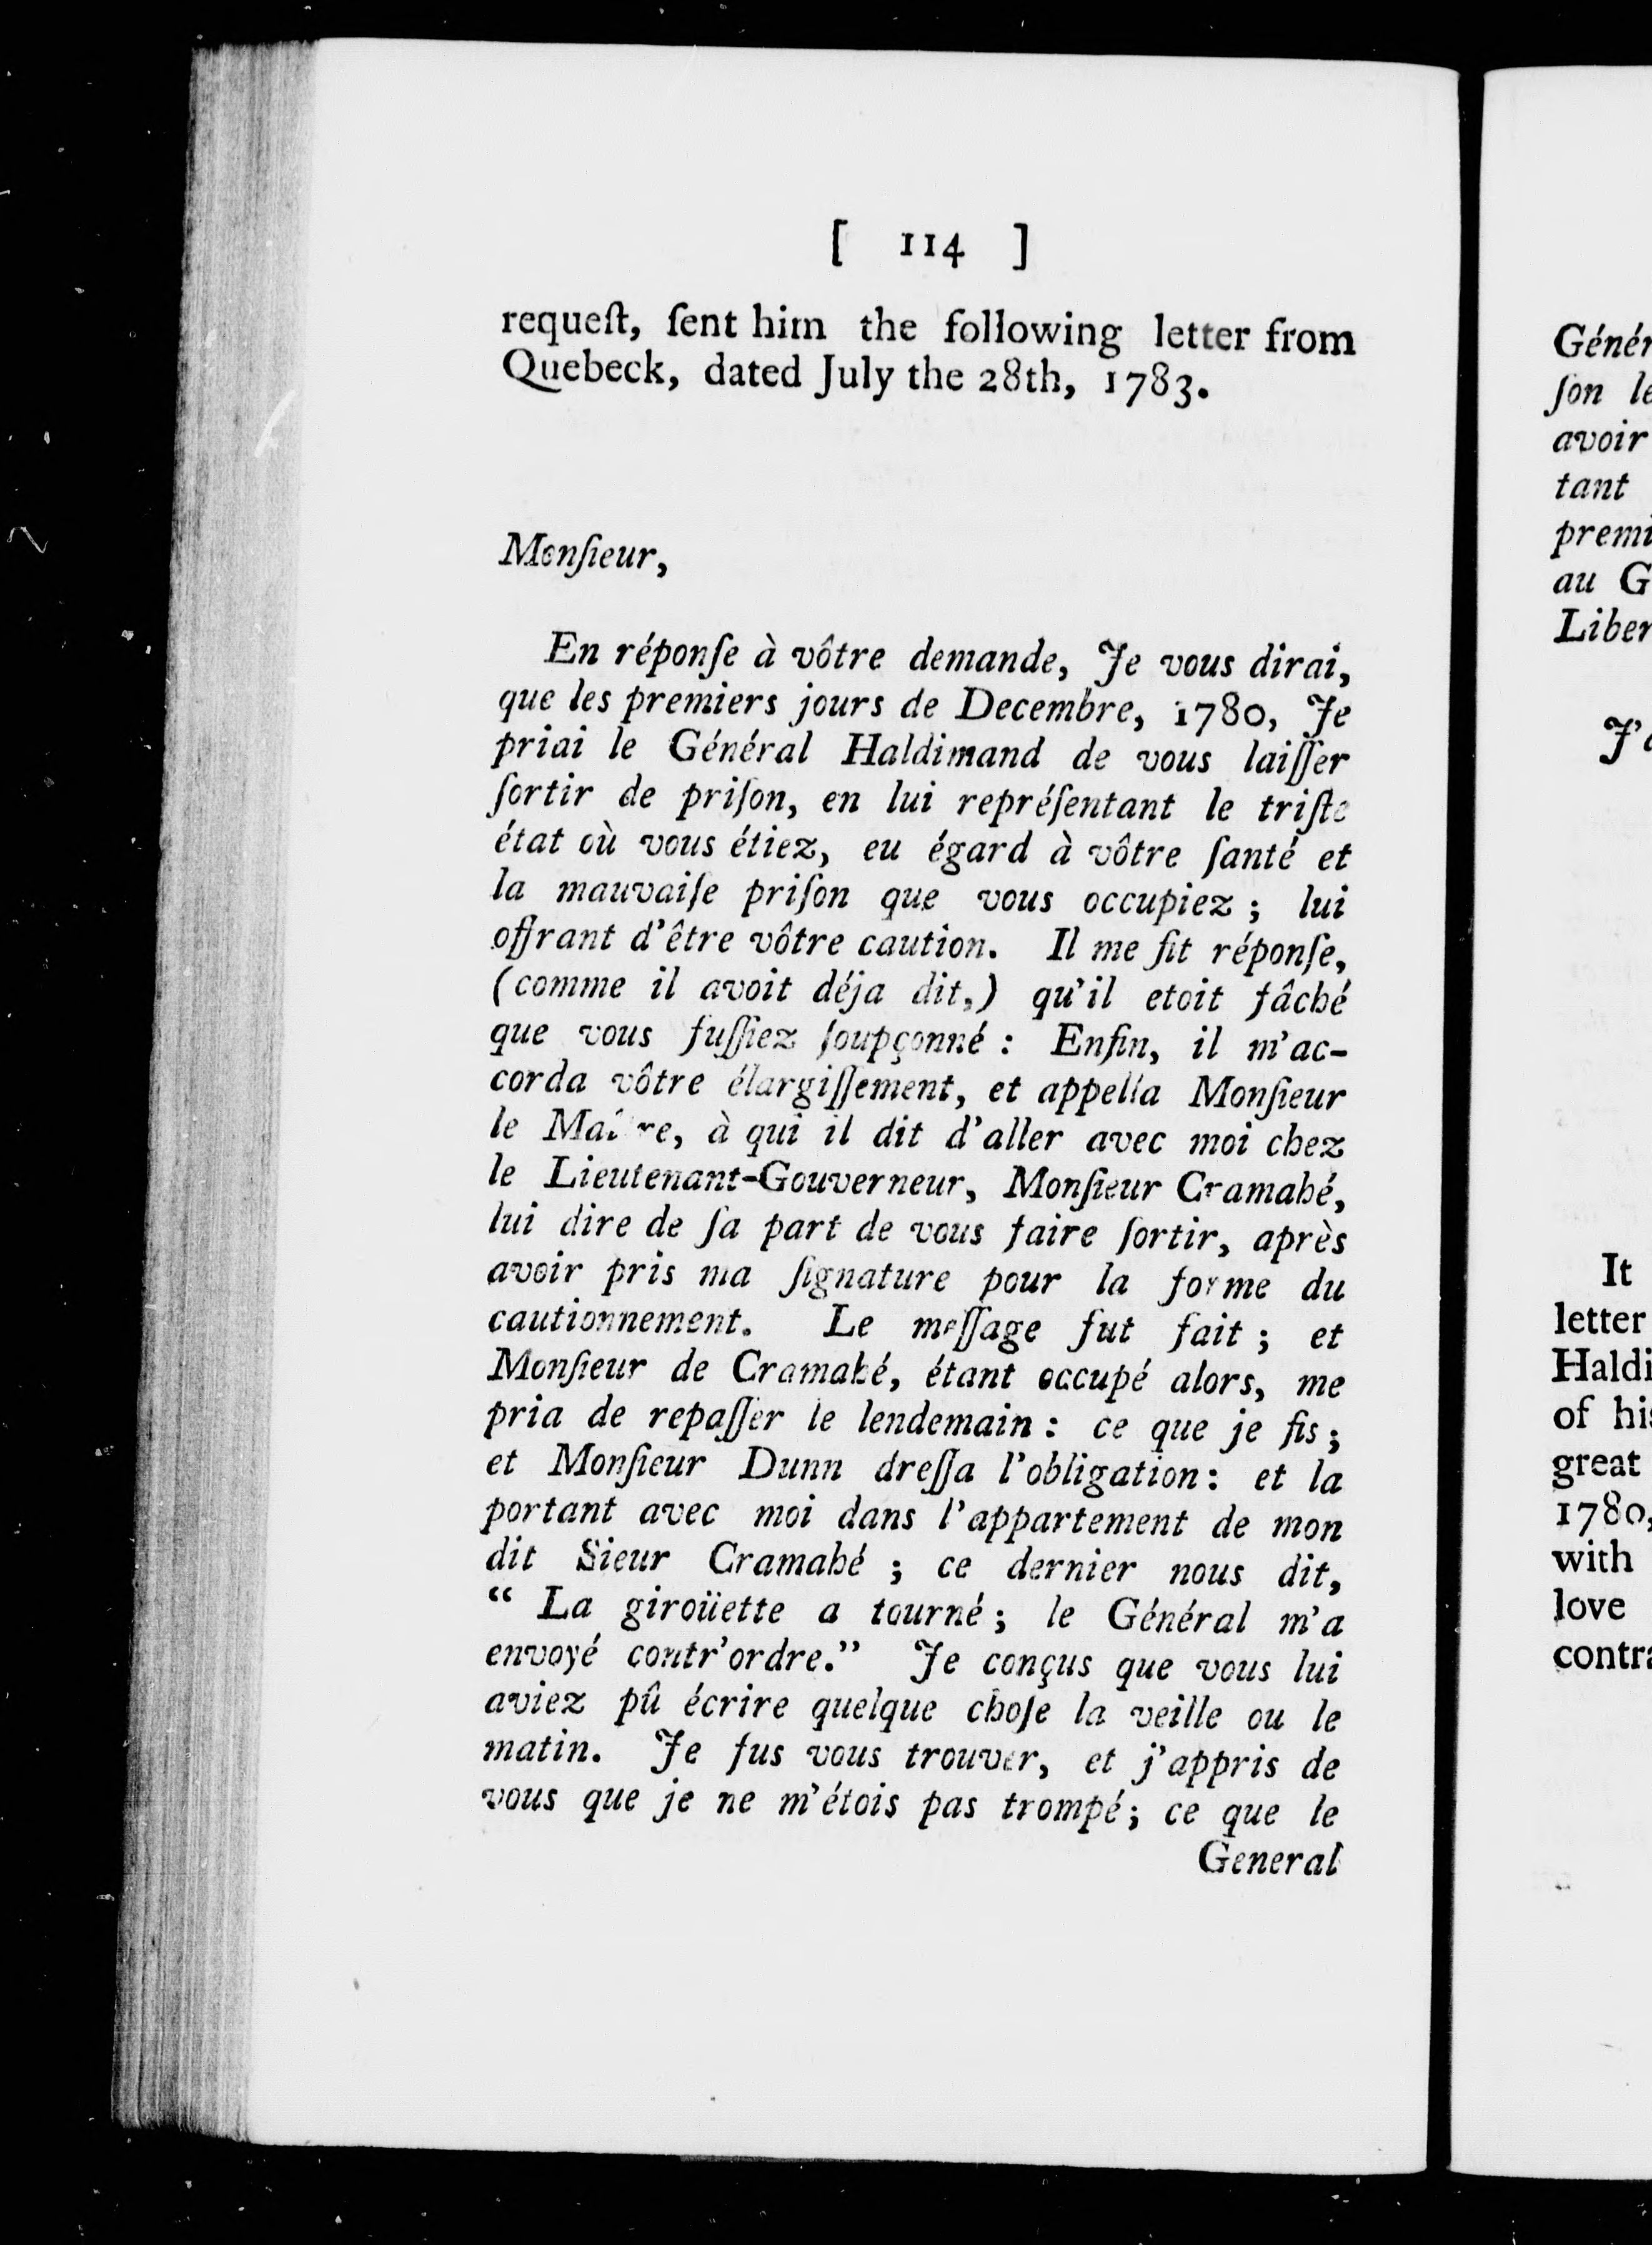 [ 114 ]
requeſt, ſent him the following letter from
Quebeck, dated July the 28th, 1783.
Monſieur,
En réponſe à vôtre demande, Je vous dirai,
que les premiers jours de Decembre, 1780, Je
priai le Général Haldimand de vous laiſſer
ſortir de priſon, en lui repréſentant le triſte
état où vous étiez, eu égard à vôtre ſanté et
la mauvaiſe priſon que vous occupiez ; lui
offrant d'être vôtre caution. Il me fit réponſe,
(comme il avoit déja dit,) qu'il etoit fâché
que vous fuſſiez ſoupçonné : Enfin, il m'ac-
corda vôtre élargiſſement, et appella Monſieur
le Maître, à qui il dit d'aller avec moi chez
le Lieutenant-Gouverneur, Monſieur Cramahé,
lui dire de ſa part de vous faire ſortir, après
avoir pris ma ſignature pour la forme du
cautionnement. Le meſſage fut fait ; et
Monſieur de Cramahé, étant occupé alors, me
pria de repaſſer le lendemain : ce que je fis ;
et Monſieur Dunn dreſſa l'obligation : et la
portant avec moi dans l'appartement de mon
dit Sieur Cramahé ; ce dernier nous dit,
“ La giroüette a tourné ; le Général m'a
envoyé contr'ordre.” Je conçus que vous lui
aviez pû écrire quelque choſe la veille ou le
matin. Je fus vous trouver, et j'appris de
vous que je ne m'étois pas trompé ; ce que le
General
ſon
avoir
tant
au
It
letter
of
great
1780,
with
love